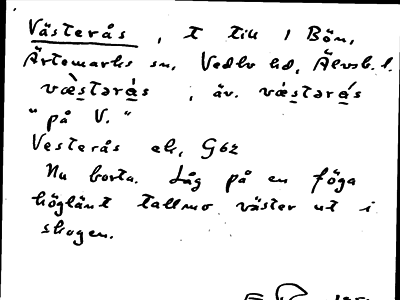 Västerås, t till 1 Bön,
Ärtemarks sn, Vedbo hd, Älvsb. l.
væ̀stərås, äv. vǽstərås
"på V."
Vesterås ek, G62
Nu borta. Låg på en föga
höglänt tallmo väster ut i
skogen.